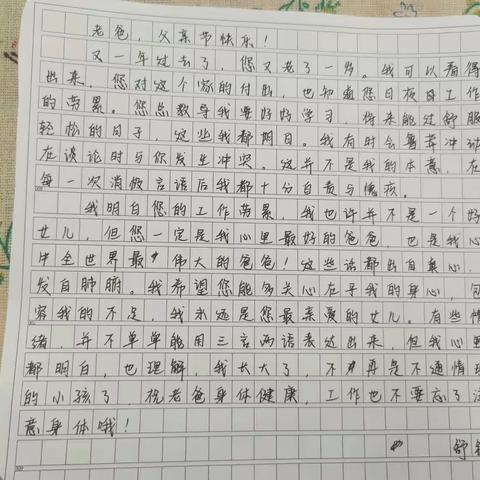 老爸，父亲节快乐！
又一年过去了，您又老了一岁。我可以看得
出来，您对这个家的付出，也知道您日夜工作
的劳累。您总教导我要好好学习，将来能过舒服
轻松的日子，这些我都明白。我有时会鲁莽冲动
在谈论时与你发生冲突。这并不是我的本意，在
每一次消极言语后我都十分自责与愧疚。
我明白您的工作劳累，我也许并不是一个好
女儿，但您一定是我心里最好的爸爸，也是我心
中全世界最伟大的爸爸！这些话都出自真心，
发自肺腑。我希望您能多关心在乎我的身心，包
容我的不足，我永远是您最亲爱的女儿。有些情
绪，并不单单能用三言两语表达出来，但我心里
都明白，也理解，我长大了，不再是不通情理
的小孩了，祝老爸身体健康，工作也不要忘了注
意身体哦！
舒
300